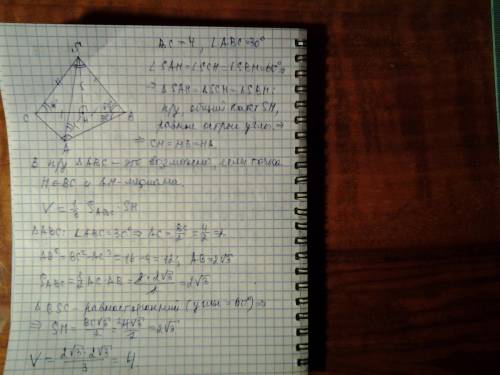 BC = 4, ∠ABC=30°
∠SAH=∠SCH=∠SBH=60°⇒
⇒ ΔSAH=ΔSCH=ΔSBH:
п/у, общий катет SH,
равные острые углы ⇒
⇒ CH=HB=HA.
S
C
B
A
H
В п/у ΔABC – это возможно, если точка
H∈BC и AH-медиана.
V = 1/3 S_ABC · SH
ΔABC: ∠ABC=30° ⇒ AC = BC/2 = 4/2 = 2
AB² = BC²-AC² = 16-4=12; AB=2√3
S_ABC = 1/2 AC·AB = 2·2√3/2 = 2√3
ΔBSC – равносторонний (углы = 60°) ⇒
⇒ SH = BC√3/2 = 4√3/2 = 2√3
V = 2√3·2√3/3 = 4